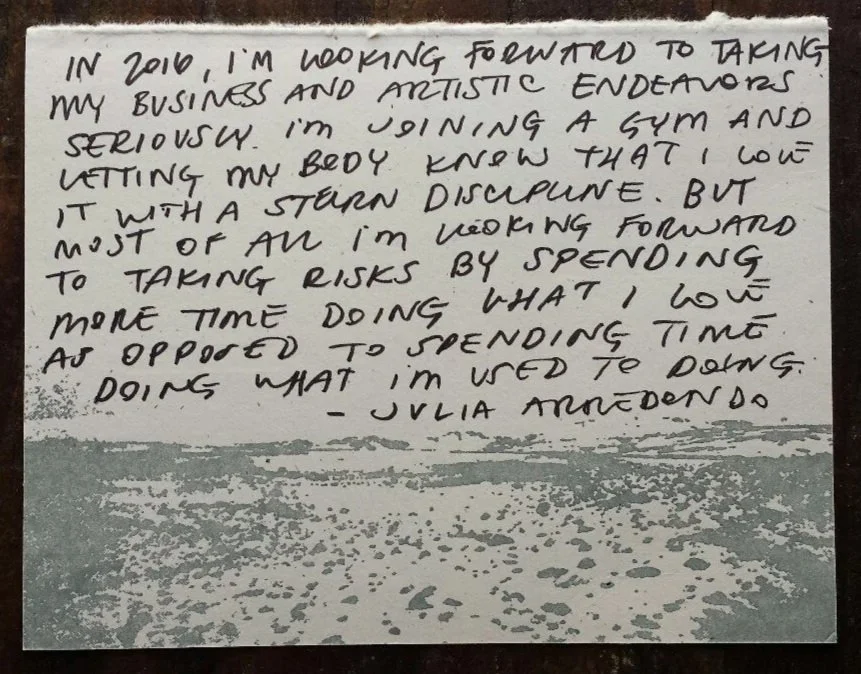 IN 2016, I'M LOOKING FORWARD TO TAKING
MY BUSINESS AND ARTISTIC ENDEAVORS
SERIOUSLY. I'M JOINING A GYM AND
LETTING MY BODY KNOW THAT I LOVE
IT WITH A STERN DISCIPLINE. BUT
MOST OF ALL I'M LOOKING FORWARD
TO TAKING RISKS BY SPENDING
MORE TIME DOING WHAT I LOVE
AS OPPOSED TO SPENDING TIME
DOING WHAT I'M USED TO DOING.
- JULIA ARREDONDO